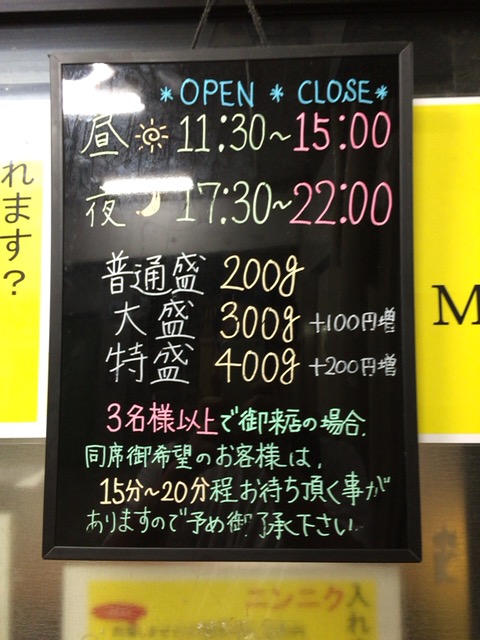 *OPEN * CLOSE*
昼 11:30~15:00
夜 17:30~22:00
普通盛 200g
大盛 300g +100円増
特盛 400g +200円増
3名様以上で御来店の場合、
同席御希望のお客様は、
15分~20分程お待ち頂く事が
ありますので予め御了承下さい。
れます?
M
ニンニク入れ